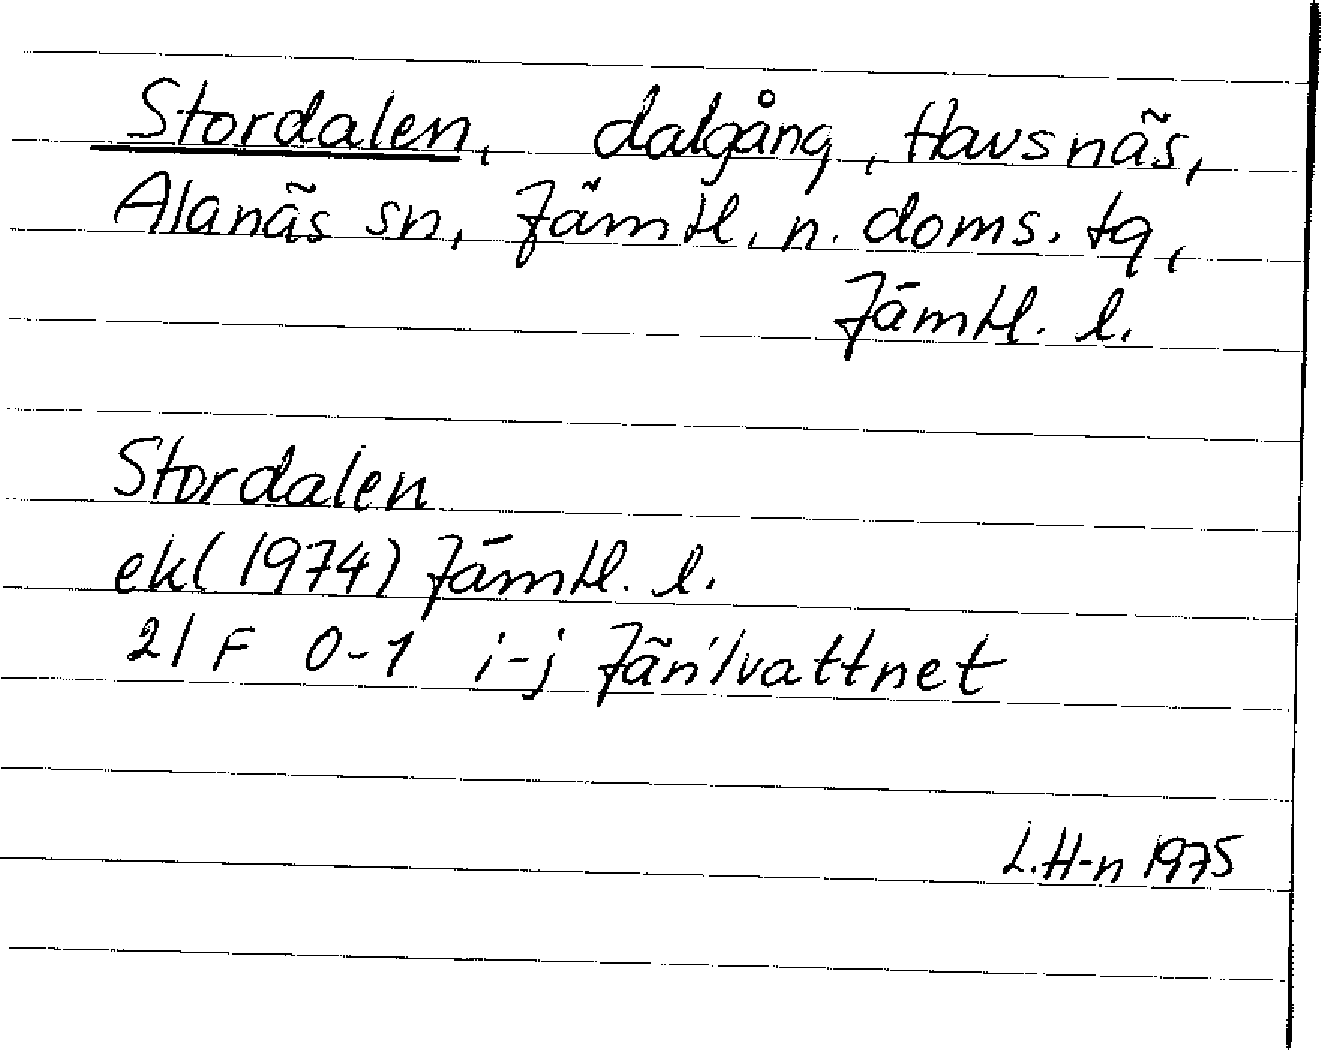 Stordalen, dalgång, Havsnäs,
Alanäs sn, Jämtl. n. doms. tg,
Jämtl. l.
Stordalen
ek(1974) Jämtl. l.
21 F 0-1 i-j Järilvattnet
L.H-n 1975